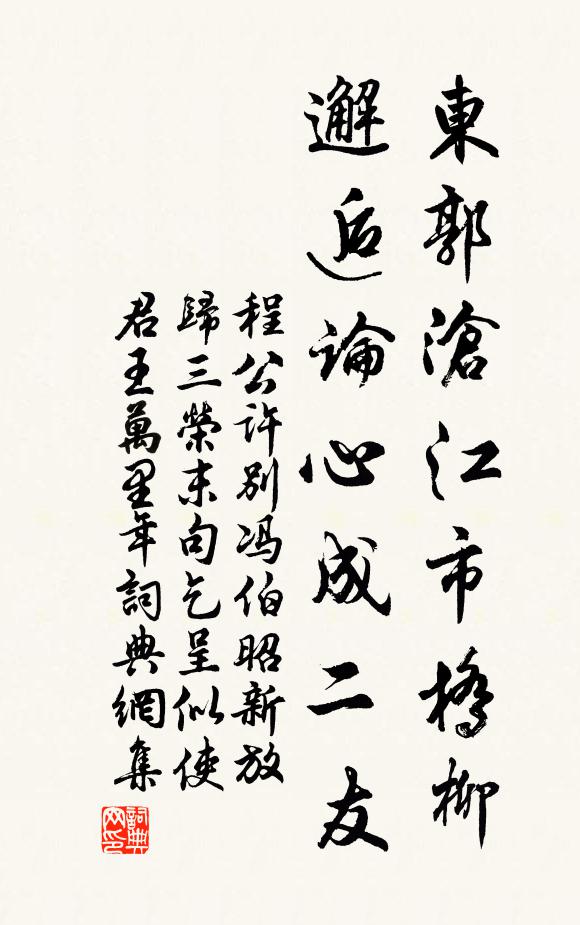 東郭滄江市橋柳
邂逅論心成二友
程公許別冯伯昭新放
歸三榮末句乞呈似使
君王萬里年詞典網集
詞典网印